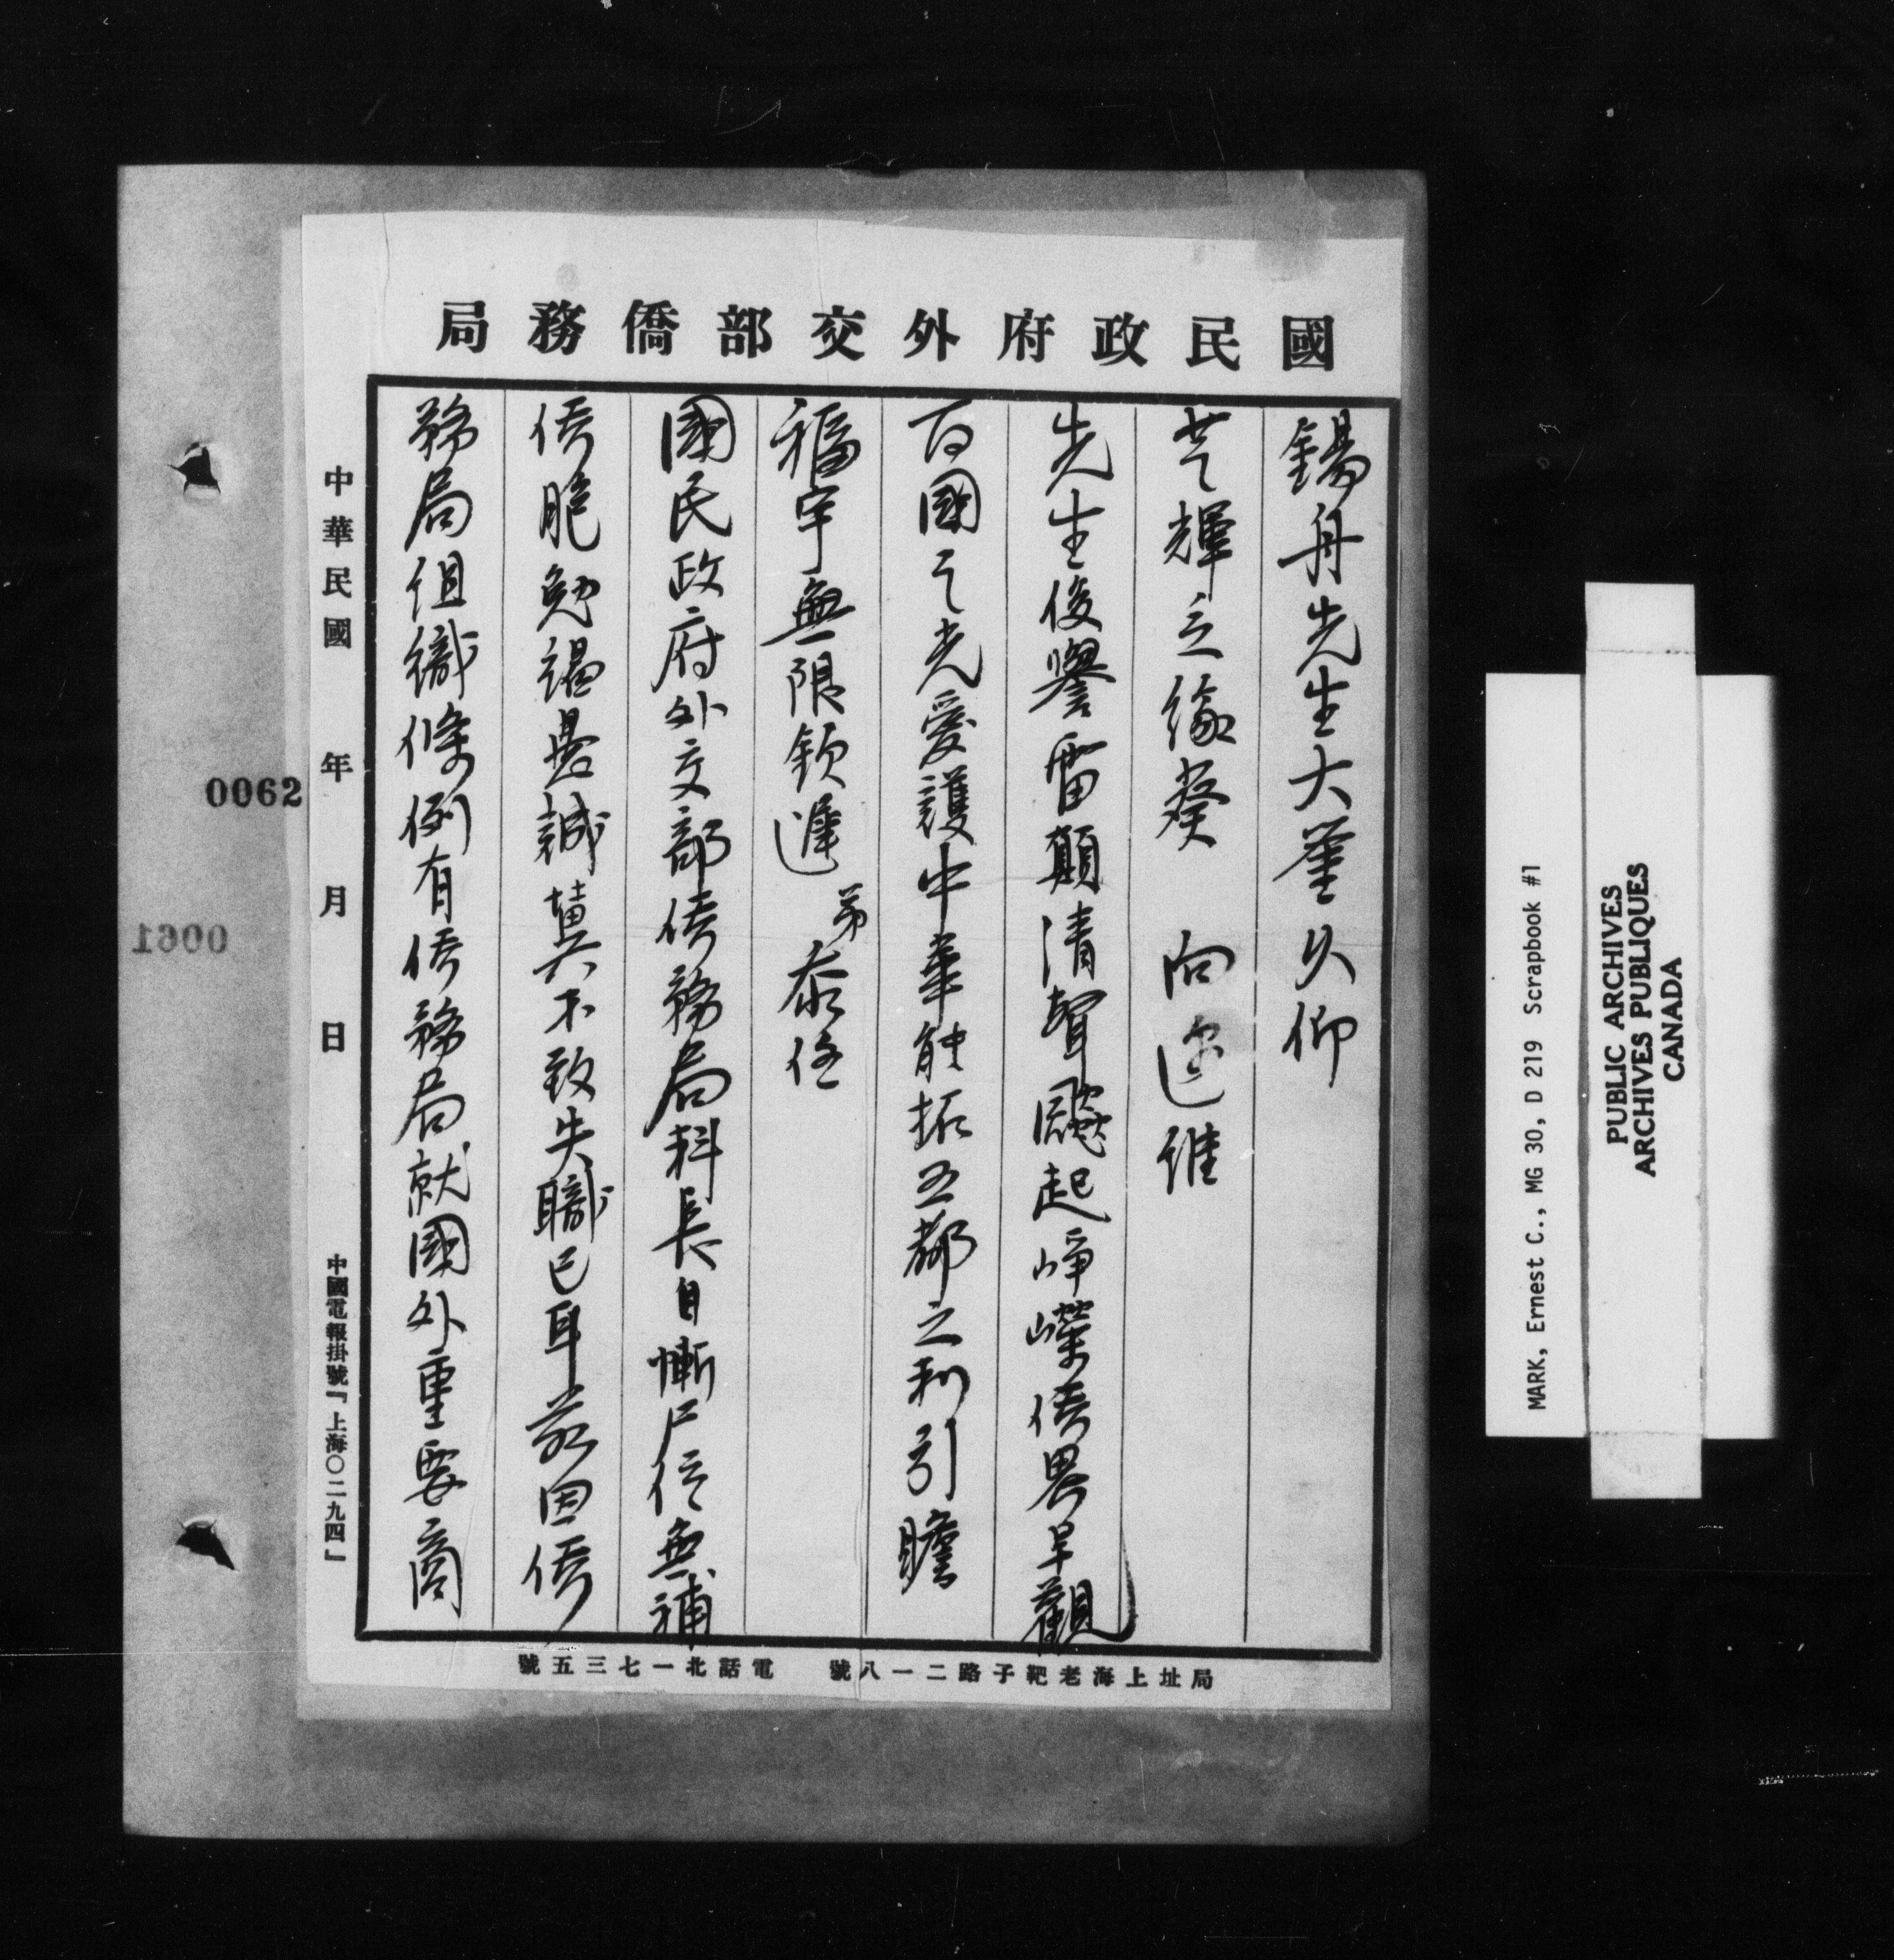 國民政府外交部僑務局
錫舟先生大鑒久仰
芝輝立緣葵向迩維
先生俊譽雷顛清聲颷起崢嶸僑界早觀
百國之光愛護中華能拓五都之利引瞻
福宇無限欽遲弟忝任
國民政府外交部僑務局科長自慚尸位無補
僑胞勉竭愚誠冀不致失職已耳茲因僑
務局組織條例有僑務局就國外重要商
中華民國 年 月 日
中國電報掛號『上海〇二九四』
局址上海老靶子路二一八號 電話北一七三五號
0062
0061
MARK, Ernest C., MG 30, D 219 Scrapbook #1
PUBLIC ARCHIVES
ARCHIVES PUBLIQUES
CANADA